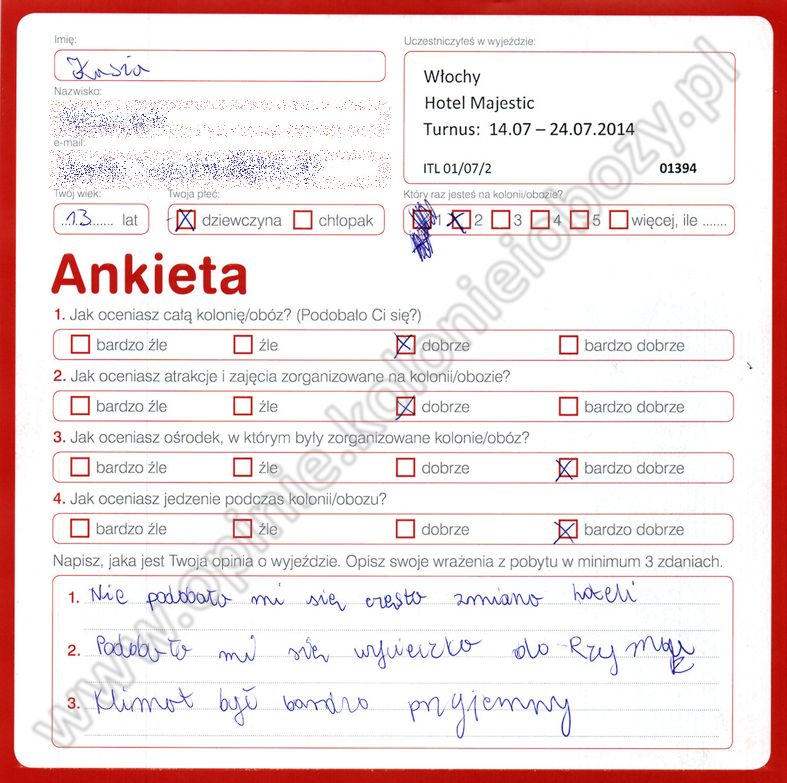 Imię:
Kasia
Uczestniczyłeś w wyjeździe:
Włochy
Hotel Majestic
Turnus: 14.07 – 24.07.2014
ITL 01/07/2 01394
Nazwisko:
e-mail:
Twój wiek:
13 lat
Twoja płeć:
dziewczyna chłopak
Który raz jesteś na kolonii/obozie?
1 2 3 4 5 więcej, ile .......
Ankieta
1. Jak oceniasz całą kolonię/obóz? (Podobało Ci się?)
bardzo źle źle dobrze bardzo dobrze
2. Jak oceniasz atrakcje i zajęcia zorganizowane na kolonii/obozie?
bardzo źle źle dobrze bardzo dobrze
3. Jak oceniasz ośrodek, w którym były zorganizowane kolonie/obóz?
bardzo źle źle dobrze bardzo dobrze
4. Jak oceniasz jedzenie podczas kolonii/obozu?
bardzo źle źle dobrze bardzo dobrze
Napisz, jaka jest Twoja opinia o wyjeździe. Opisz swoje wrażenia z pobytu w minimum 3 zdaniach.
1. Nie podobało mi się częsta zmiana hoteli
2. Podobała mi się wycieczka do Rzymu
3. Klimat był bardzo przyjemny
www.opinie.kolonieiobozy.pl